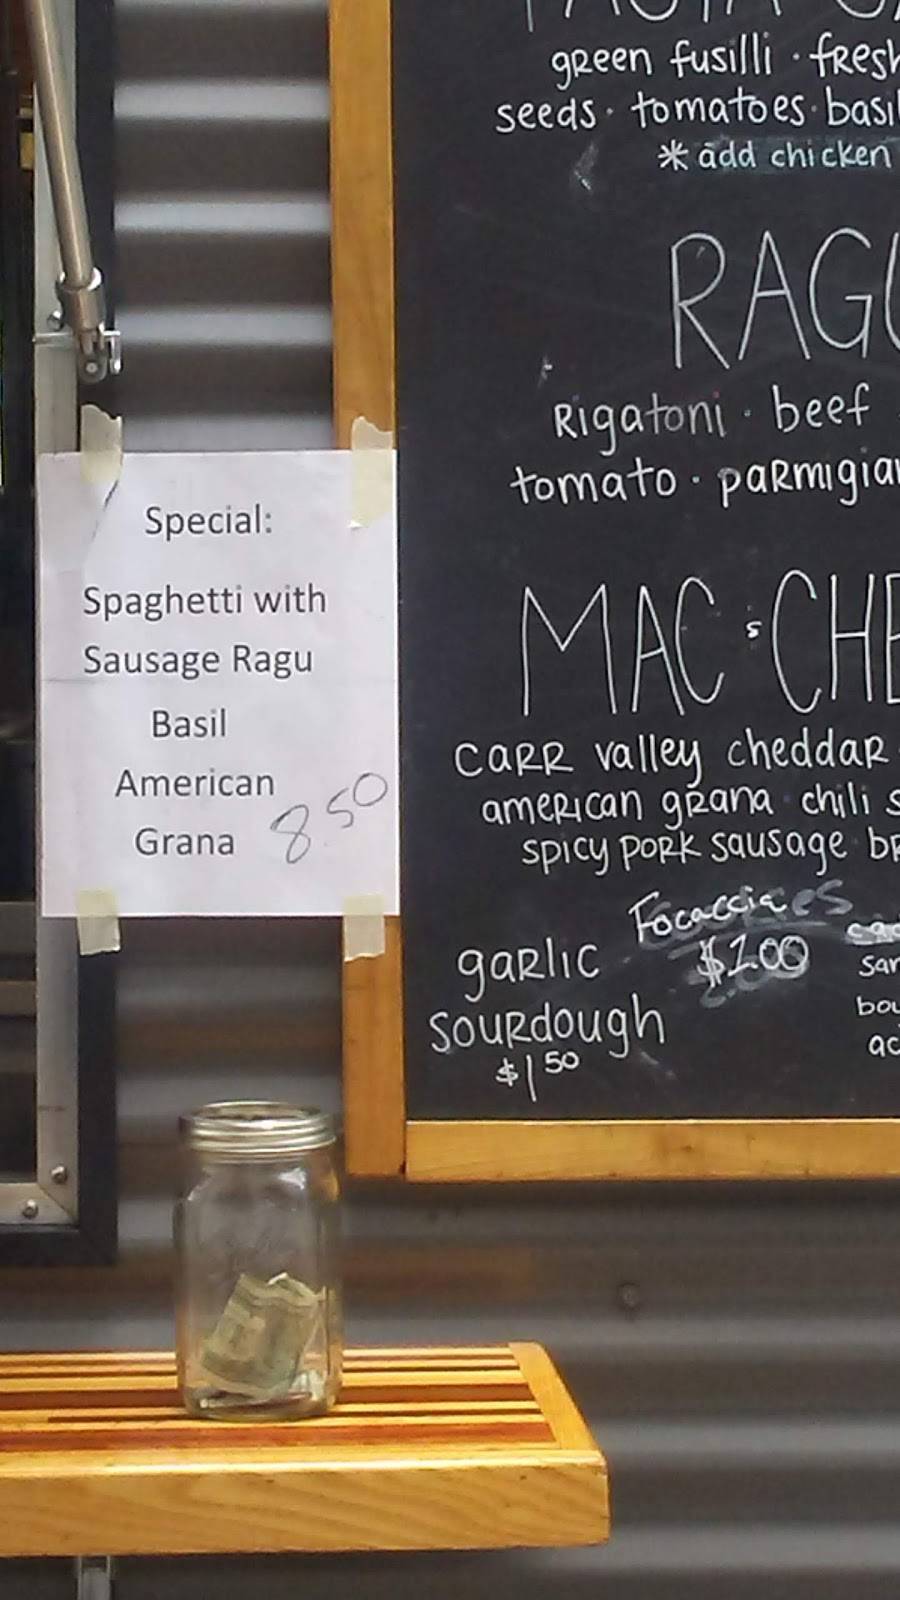 Special:
Spaghetti with
Sausage Ragu
Basil
American
Grana
8.50
green fusilli · fresh
seeds · tomatoes · basil
* add chicken
RAGU
Rigatoni · beef
tomato ·
MAC 's CHE
carr valley cheddar
american grana · chili
spicy pork sausage
Focaccia
$1.00
garlic
sourdough
$1 50